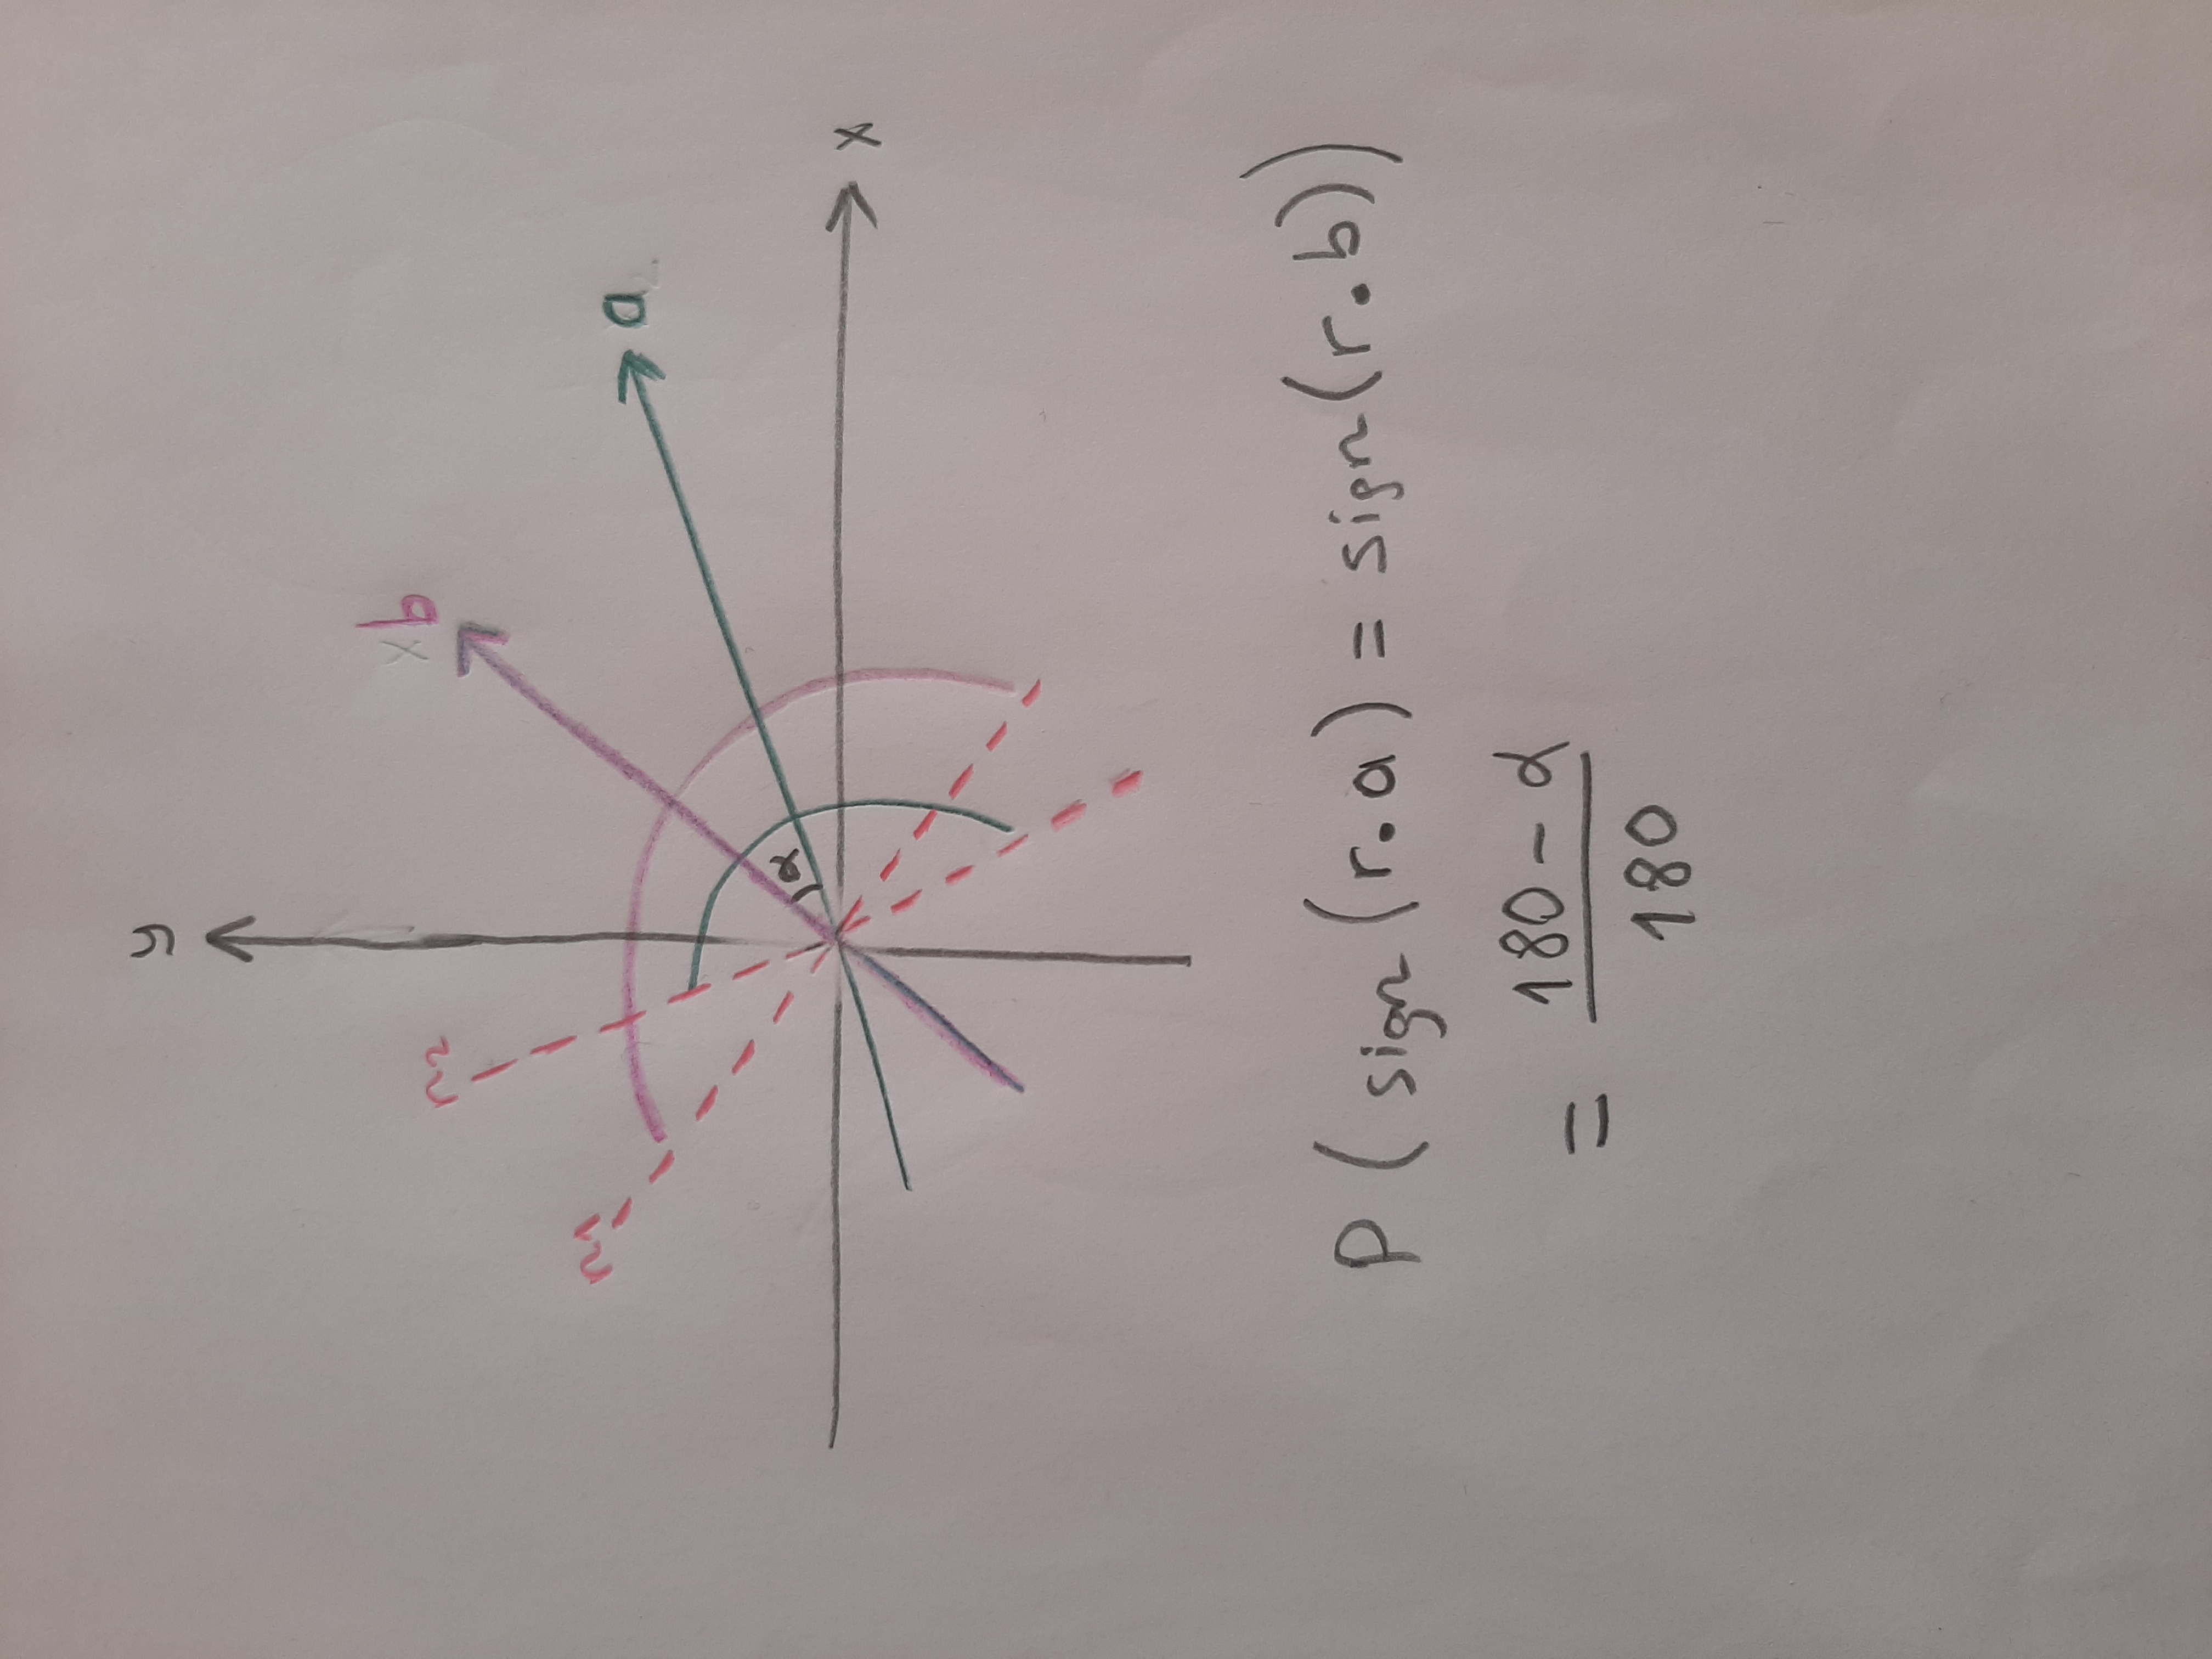 y
x b
r2
r1
a
α
x
P ( sign (r.a) = sign (r.b))
= 180 - α
180